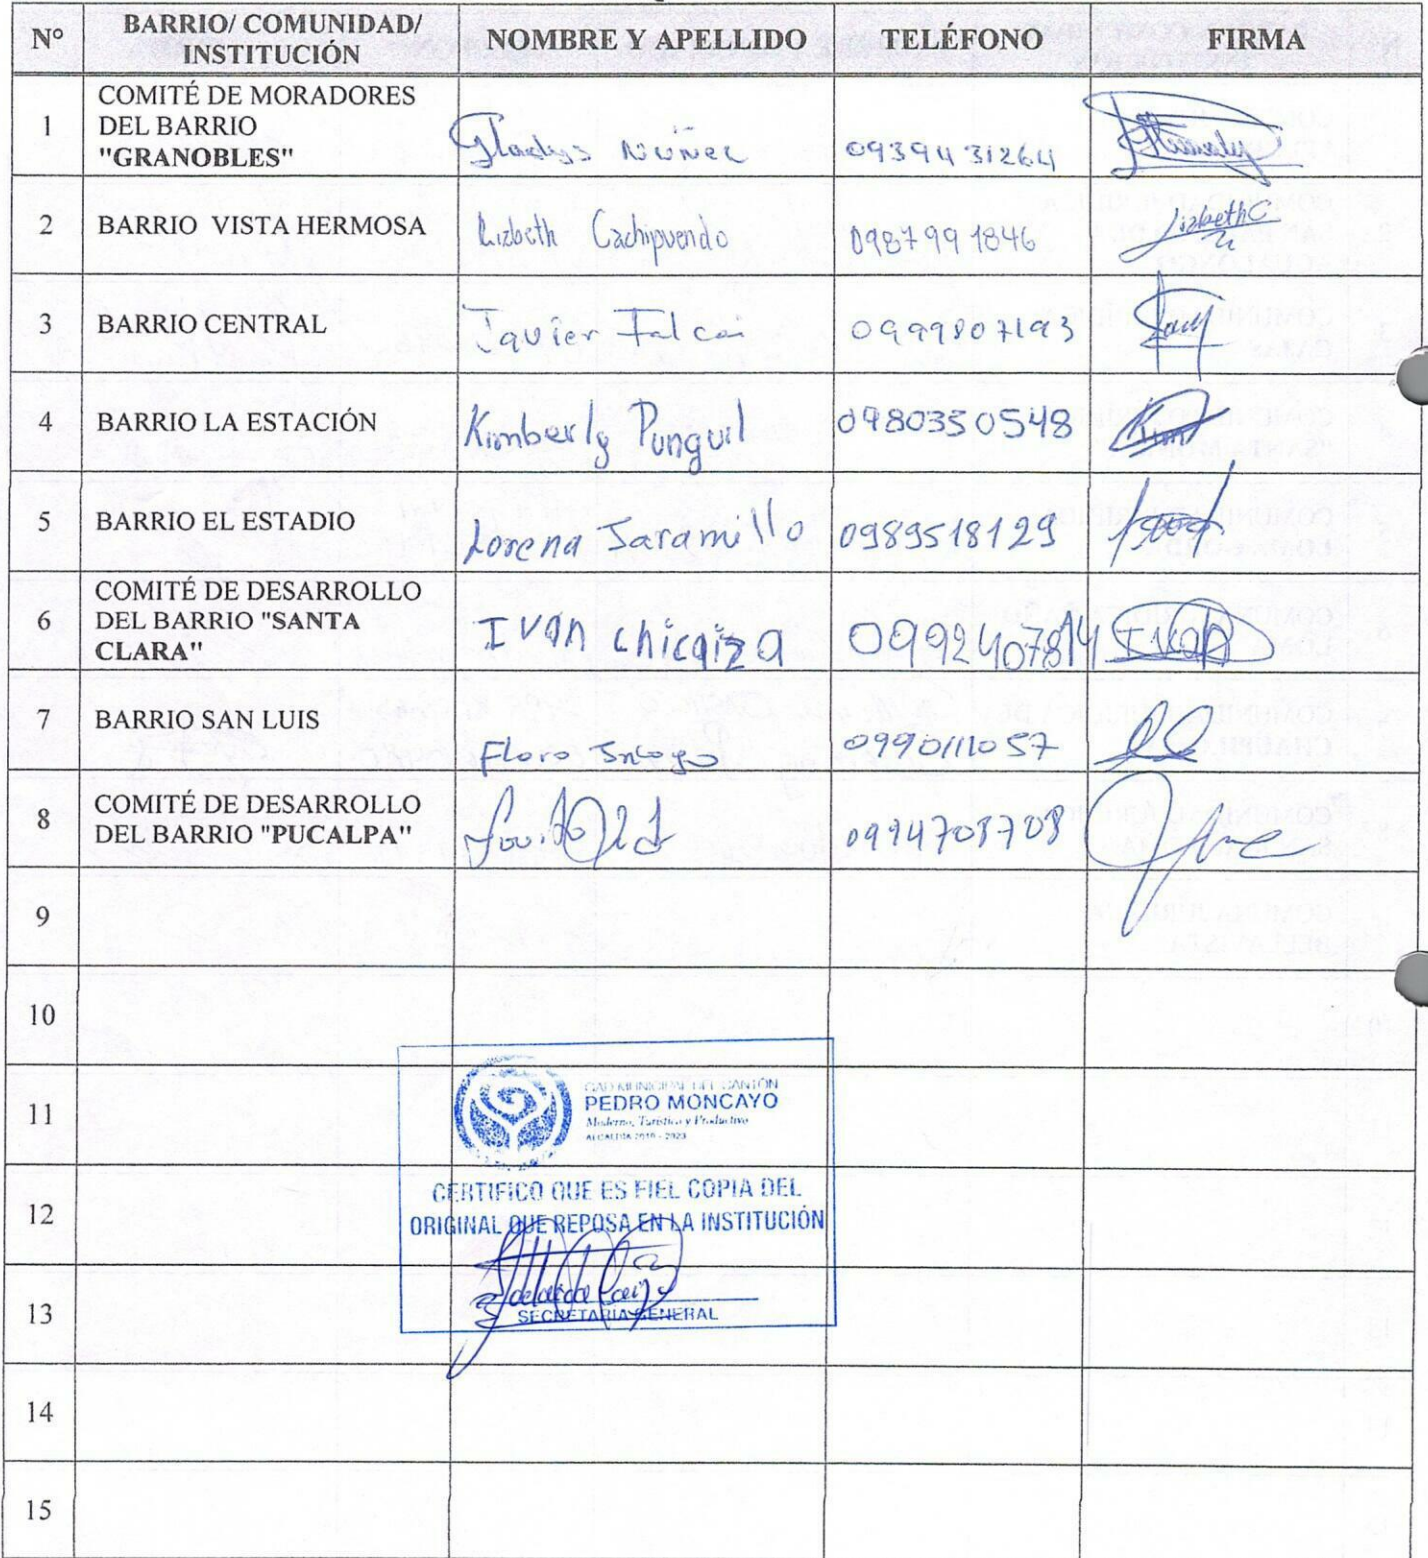 N° BARRIO/ COMUNIDAD/ INSTITUCIÓN NOMBRE Y APELLIDO TELÉFONO FIRMA
1 COMITÉ DE MORADORES DEL BARRIO "GRANOBLES" Gladys Núñez 0939431264
2 BARRIO VISTA HERMOSA Lizbeth Cachipuendo 0987991846 Lizbeth C
3 BARRIO CENTRAL Javier Falcon 0999807193
4 BARRIO LA ESTACIÓN Kimberly Punguil 0980350548
5 BARRIO EL ESTADIO Lorena Jaramillo 0989518129
6 COMITÉ DE DESARROLLO DEL BARRIO "SANTA CLARA" Ivan chicaiza 0992407814 Ivan
7 BARRIO SAN LUIS Floro 0990111057
8 COMITÉ DE DESARROLLO DEL BARRIO "PUCALPA" 0994708708
9
10
11
12
13
14
15
GAD MUNICIPAL DEL CANTÓN
PEDRO MONCAYO
Moderno, Turístico y Productivo
ALCALDÍA 2019 - 2023
CERTIFICO QUE ES FIEL COPIA DEL
ORIGINAL QUE REPOSA EN LA INSTITUCIÓN
SECRETARIA GENERAL